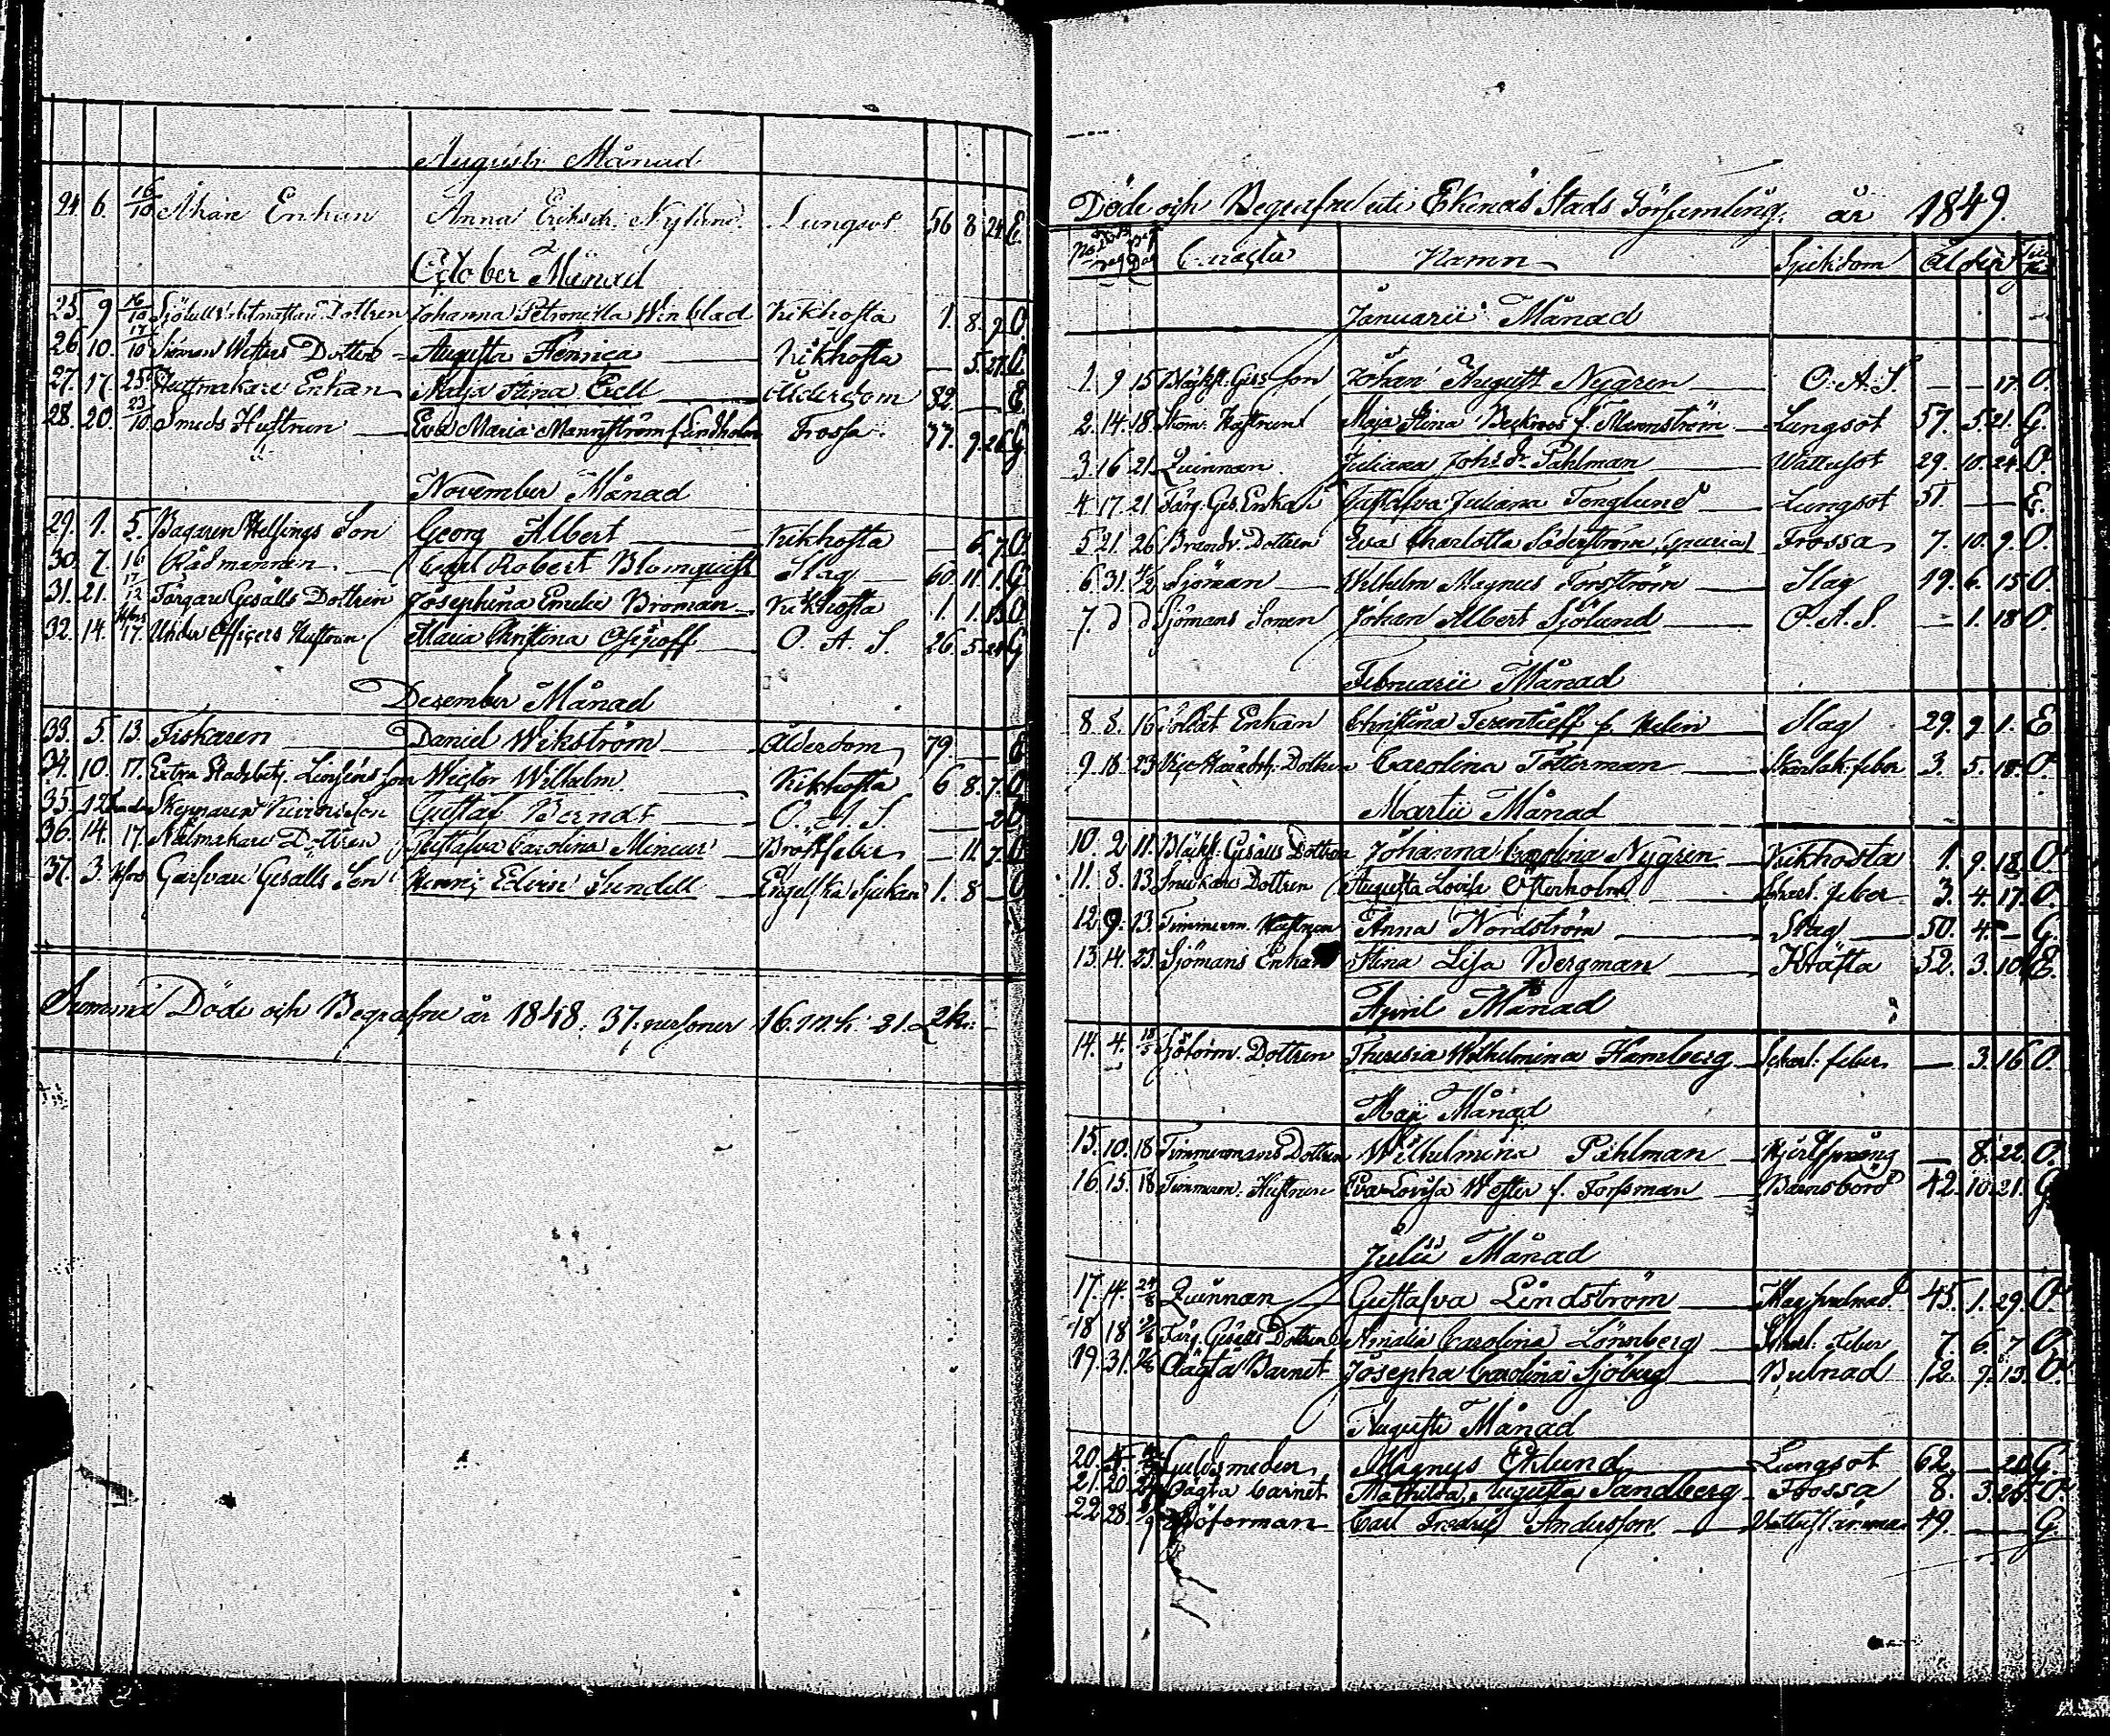 Augusti Månad
24. 6. 16/10 Enkan Anna Ericksdr Nylund Lungsot 56 8 24 E.
October Månad
25. 9 16/10 Dottren Johanna Petronella Winblad Kikhosta 1. 8. 9 O.
26. 10. 17/10 Dottren Augusta Hennica Kikhosta — 5. 27. O.
27. 17. 25 Hattmakare Enkan Maja Stina Ekell Ålderdom 82. — E.
28. 20. 23/10 Smeds Hustrun Eva Maria Mannström f. Lindholm Frossa 77. 9. 26 G
November Månad
29. 1. 5. Bagaren Helsings Son Georg Albert Kikhosta — 6. 7. O.
30. 7. 16 Rådmannen Carl Robert Blomquist Slag 60. 11. 1. G
31. 21. 17/12 Färgare Gesälls Dottren Josephina Emelie Broman Kikhosta 1. 1. 13. O
32. 14. 17. Under Officers Hustrun Maria Christina O. A. S. 26. 5. 24 G
Desember Månad
33. 5. 13. Fiskaren Daniel Wikström Ålderdom 79. —
34. 10. 17. Extra Stadsbetj. Son Victor Wilhelm Kikhosta 6. 8. 7. O
35. 12. Son Gustaf Berndt O. A. S. — 2 O
36. 14. 17. Nålmakare Dottren Gustafva Carolina Mineur Bröstfeber — 11. 7. O
37. 3. Garfvare Gesälls Son Henric Edvin Sundell Engelska Sjukan 1. 8 — O
Summa Döde och Begrafne år 1848. 37. personer 16. m.k. 21. q.k.
Döde och Begrafne uti Ekenäs Stads Församling år 1849.
No Död dag Beg Dag Caracter Namn Sjukdom Ålder
Januarii Månad
1. 9 15 Gess. Son Johan August Nygren O. A. S. — — 17. O.
2. 14. 18. Hustrun Maja Stina Beckroos f. Mannström Lungsot 57. 5. 21. G.
3. 16 21. Quinnan Juliana Johs Dr Påhlman Wattusot 29. 10. 24. O.
4. 17. 21. Färg. Ges. Enka Gustafva Juliana Tenglund Lungsot 51. — E.
5. 21. 26 Brandv. Dottren Eva Charlotta Söderström (spuria) Frossa 7. 10. 9. O.
6. 31. 4/2 Sjöman Wilhelm Magnus Forsström Slag 19. 6. 15. O.
7. D D Sjömans Sonen Johan Albert Sjölund O. A. S. — 1. 18. O.
Februarii Månad
8. 8. 16 Soldat Enkan Christina Terentieff f. Helin Slag 29. 9 1. E
9. 18. 23 Dottren Carolina Tötterman Skarlak. feber 3. 5. 18. O.
Martii Månad
10. 2 11. Gesälls Dottren Johanna Carolina Nygren Kikhosta 1. 9. 18. O.
11. 8. 13. Snickare Dottren Augusta Lovisa Österholm Skarl. feber 3. 4. 17. O.
12. 9. 13. Timmerm. Hustrun Anna Nordström Slag 50. 4. — G
13. 14. 23. Sjömans Enkan Stina Lisa Bergman Kräfta 52. 3. 10. E.
April Månad
14. 4. 18/5 Dottren Theresia Wilhelmina Hamberg Skarl. feber — 3. 16 O.
Maji Månad
15. 10. 18 Timmermans Dottren Wilhelmina Påhlman — 8. 22. O.
16. 15. 18 Timmerm. Hustrun Eva Lovisa Wester f. Forsman Barnsbörd 42. 10. 21. G
Julii Månad
17. 14. 24/8 Quinnan Gustafva Lindström 45. 1. 29. O.
18 18 Färg. Gesälls Dottren Amalia Carolina Lönnberg Skarl. Feber 7. 6. 7 O.
19. 31. Oägta Barnet Josepha Carolina Sjöberg Bulnad 12. 9. 13. O.
Augusti Månad
20. Guldsmeden Magnus Eklund Lungsot 62. — 20 G.
21. 20 Oägta barnet Mathilda Augusta Sandberg Frossa 8. 3. 26. O.
22. 28. Carl Fredric Andersson 49. — G.